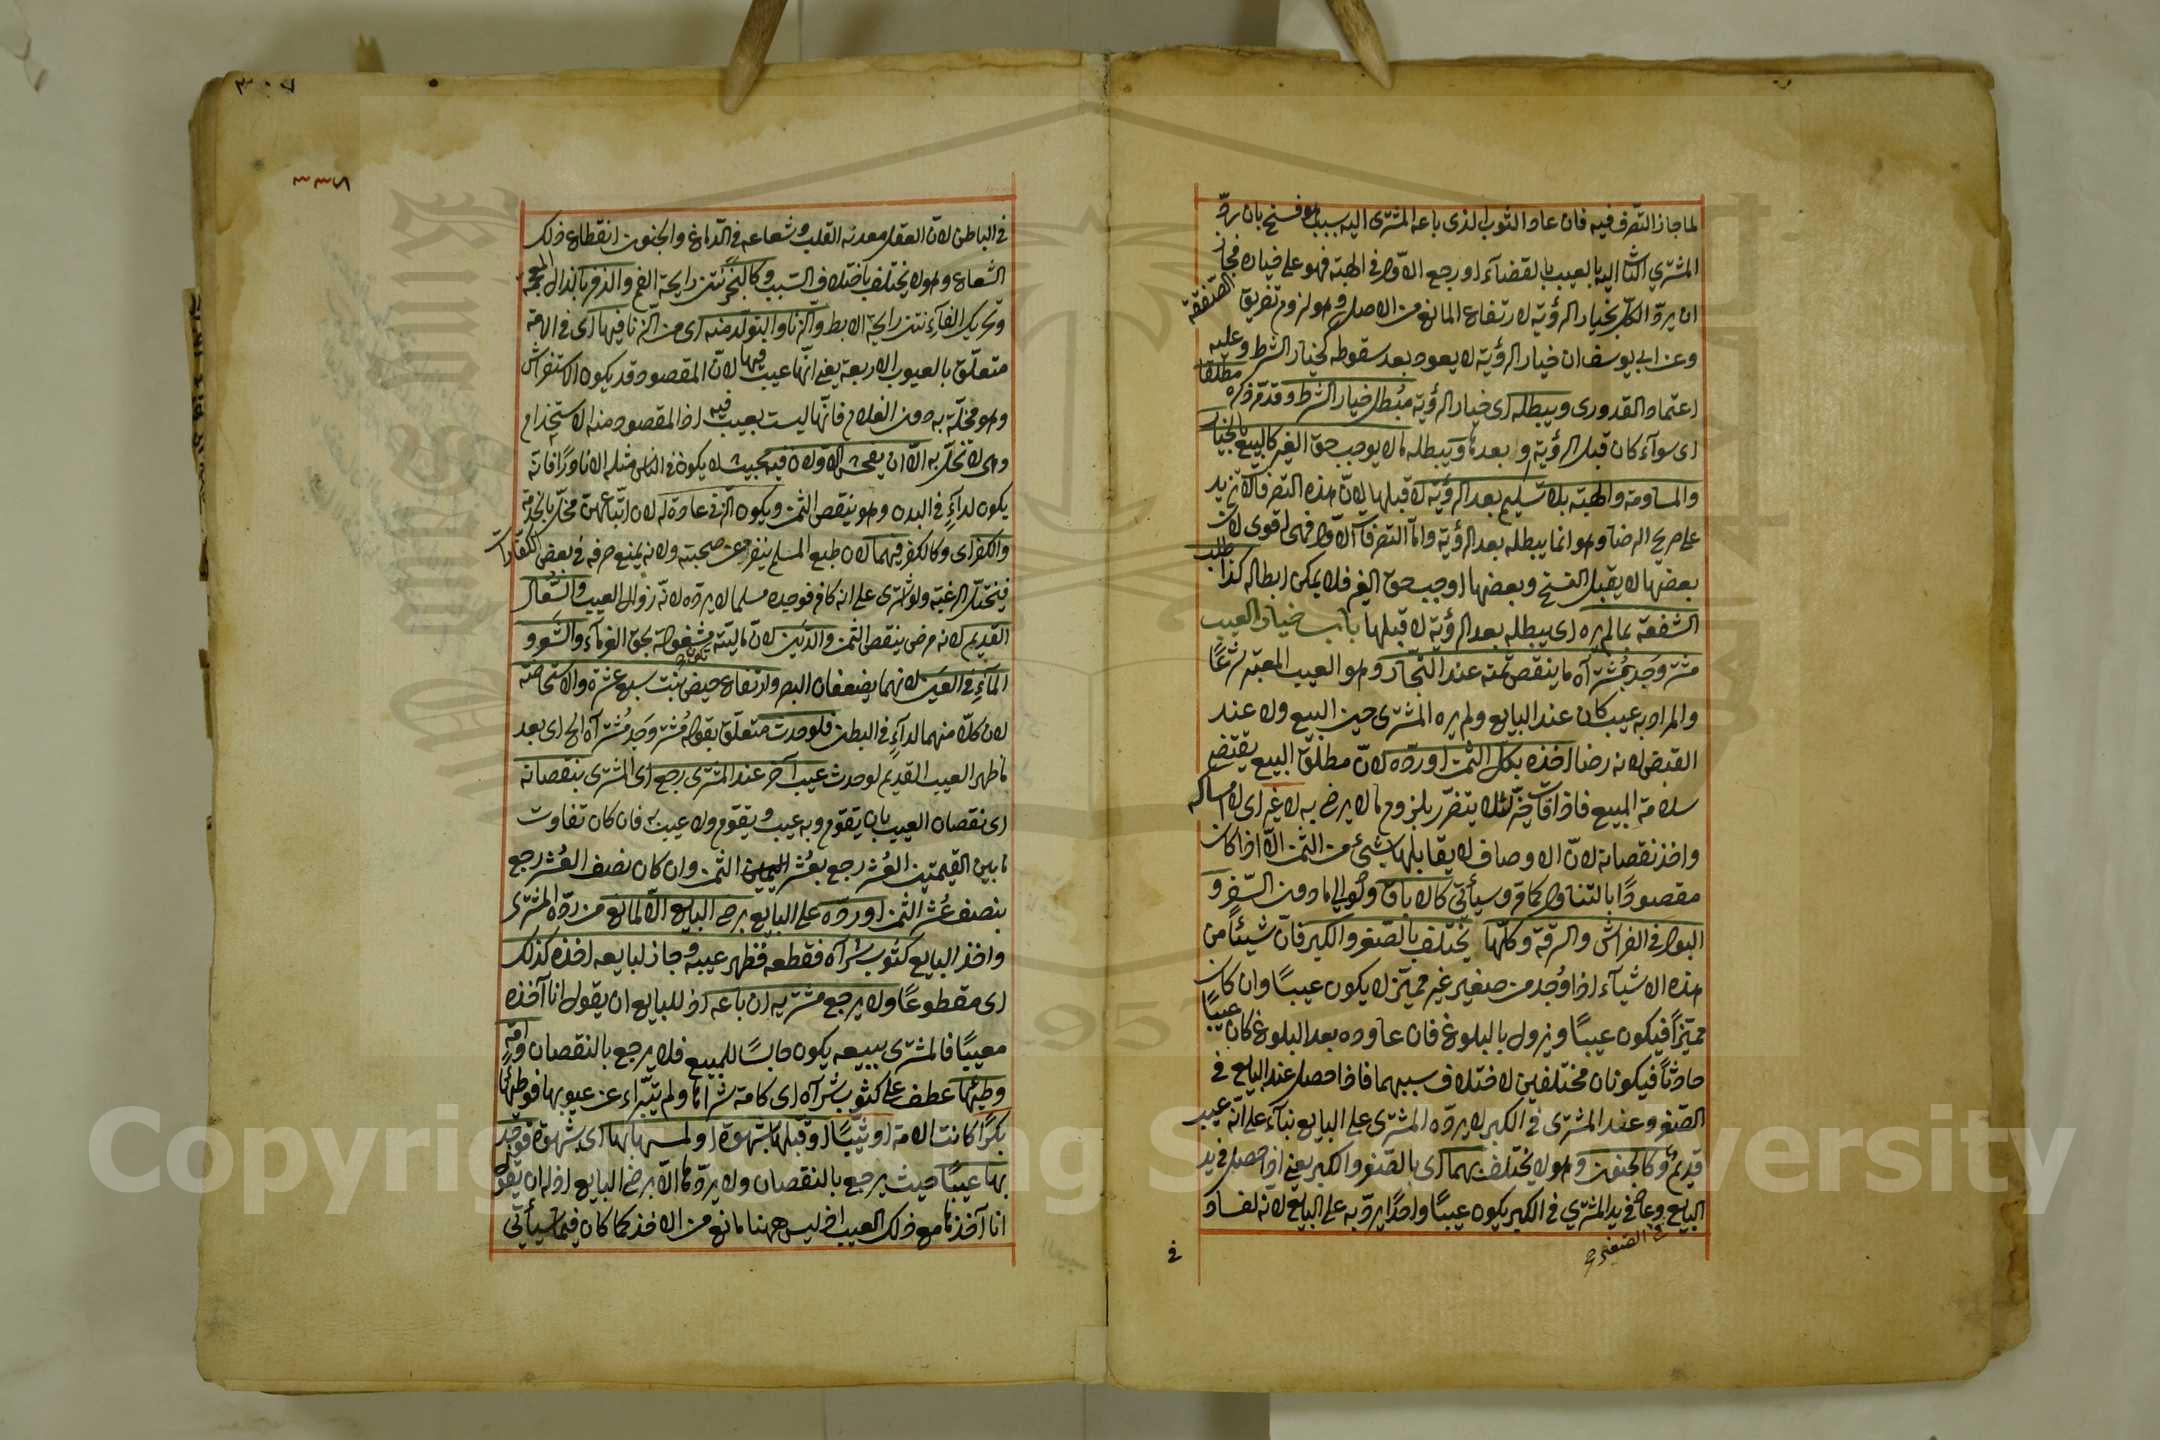 لما جاز التصرف فيه فان عاد الثوب الذى باعه المشترى اليه بسبب هو فسخ بان ردّ
المشتري الثانى اليه بالعيب بالقضآء او رجع الاول فى الهبة فهو على خياره فجاز
ان يردّ الكل بخيار الرؤية لارتفاع المانع من الاصل وهو لزوم تفريق الصفقة
وعن ابى يوسف ان خيار الرؤية لا يعود بعد سقوطه كخيار الشرط وعليه
اعتماد القدورى ويبطله اى خيار الرؤية مبطل خيار الشرط وقد مرّ ذكره مطلقا
اى سوآء كان قبل الرؤية او بعدها ويبطله ما لا يوجب حق الغير كالبيع بالخيار
والمساومة والهبة بلا تسليم بعد الرؤية لا قبلها لانّ هذه التصرفات لا تزيد
على صريح الرضا وهو انما يبطله بعد الرؤية وامّا التصرفات الاول فهى اقوى لان
بعضها لا يقبل الفسخ وبعضها اوجب حق الغير فلا يمكن ابطاله كذا طلب
الشفعة بما لم يره اى يبطله بعد الرؤية لا قبلها باب خيار العيب
مشتر وجد بمُشتراه ما ينقص ثمنه عند التجّار وهو العيب المعتبر شرعًا
والمراد به عيب كان عند البايع ولم يره المشترى حين البيع ولا عند
القبض لانه رضا اخذه بكل الثمن او ردّه لانّ مطلق البيع يقتضى
سلامة المبيع فاذا فات خيّر لئلا يتضرر بلزوم ما لا يرضى به لا غير اى لا امساكه
واخذ نقصانه لانّ الاوصاف لا يقابلها شيئ من الثمن الّا اذا كان
مقصودًا بالتناول كما مر وسيأتى كالاباق ولو الى ما دون السّفر و
البول فى الفراش والسرقة وكلّها يختلف بالصّغر والكبر فانّ شيئًا من
هذه الاشيآء اذا وُجد من صغير غير مميّز لا يكون عيبًا وان كان
مميّزًا فيكون عيبًا ويزول بالبلوغ فان عاوده بعد البلوغ كان عيبًا
حادثًا فيكونان مختلفين لاختلاف سببهما فاذا حصل عند البايع فى
الصّغر وعند المشترى فى الكبر لا يردّه المشترى على البايع بنآء على انّه عيب
قديم وكالجنون وهو لا يختلف بهما اى بالصّغر والكبر يعنى اذا حصل فى يد
البايع فى الصغر وعاد فى يد المشتري فى الكبر يكون عيبًا واحدًا يردّ به على البايع لانه لفساد
فى
٣٠٧
٣٣٧
فى الباطن لانّ العقل معدنه القلب وشعاعه فى الدماغ والجنون انقطاع ذلك
الشعاع وهو لا يختلف باختلاف السبب وكالبخر نتن رايحة الفم والذفر بالذال المعجمة
وتحريك الفآء نتن رايحة الابط والزنا والتولّد منه اى من الزنا فيها اى فى الامة
متعلّق بالعيوب الاربعة يعنى انّها عيب فيها لانّ المقصود قد يكون الاستفراش
وهو مخلّة به دون الغلام فانّها ليست بعيب فيه اذ المقصود منه الاستخدام
وهى لا تخلّ به الّا ان يفحش الاولان فيه بحيث لا يكون فى الناس مثله الا نادرًا فانه
يكون لدآء فى البدن وهو ينقص الثمن ويكون الزنى عادة له لان اتباعهن مخلّ بالخدمة
والكفر اى وكالكفر فيهما لان طبع المسلم ينفر عن صحبته ولانه يمنع صرفه فى بعض الكفارات
فيختل الرغبة ولو اشترى على انه كافر فوجده مسلما لا يردّه لانه زوال العيب والسّعال
القديم لانه مرض ينقص الثمن والدَين لانّ ماليّته مشغولة بحق الغرمآء والشَعر و
المآء فى العين لانهما يضعفان البصر وارتفاع حيض بنت سبع عشرة والاستحاضة
لان كلّا منهما لدآء فى البطن فلو حدث متعلّق بقوله مُشتر وَجد مُشتراه الخ اى بعد
ما ظهر العيب القديم لو حدث عيب آخر عند المشترى رجع اى المشترى بنقصانه
اى نقصان العيب بان يقوّم وبه عيب ويقوّم ولا عيب به فان كان تفاوت
ما بين القيمتين العُشر رجع بعُشر الثمن وان كان نصف العُشر رجع
بنصف عُشر الثمن او ردّه على البايع برضى البايع الّا لمانع من ردّه المشترى
واخذ البايع كثوب شراه فقطعه فظهر عيبه وجاز لبايعه اخذه كذلك
اى مقطوعًا ولا يرجع مشتريه ان باعه اذ للبايع ان يقول انا آخذه
معيبًا فالمشترى ببيعه يكون حابسًا للمبيع فلا يرجع بالنقصان او امة
وطئها عطف على كثوب شراه اى كامة شراها ولم يتبرّاء عن عيوبها فوطئها
بكرًا كانت الامة او ثيّبًا او قبلها بشهوة او لمسها بها اى بشهوة فوجد
بها عيبًا حيث يرجع بالنقصان ولا يردّها الّا برضى البايع اذ له ان يقول
انا آخذها مع ذلك العيب اذ ليس ههنا مانع من الاخذ كما كان فيما سيأتى